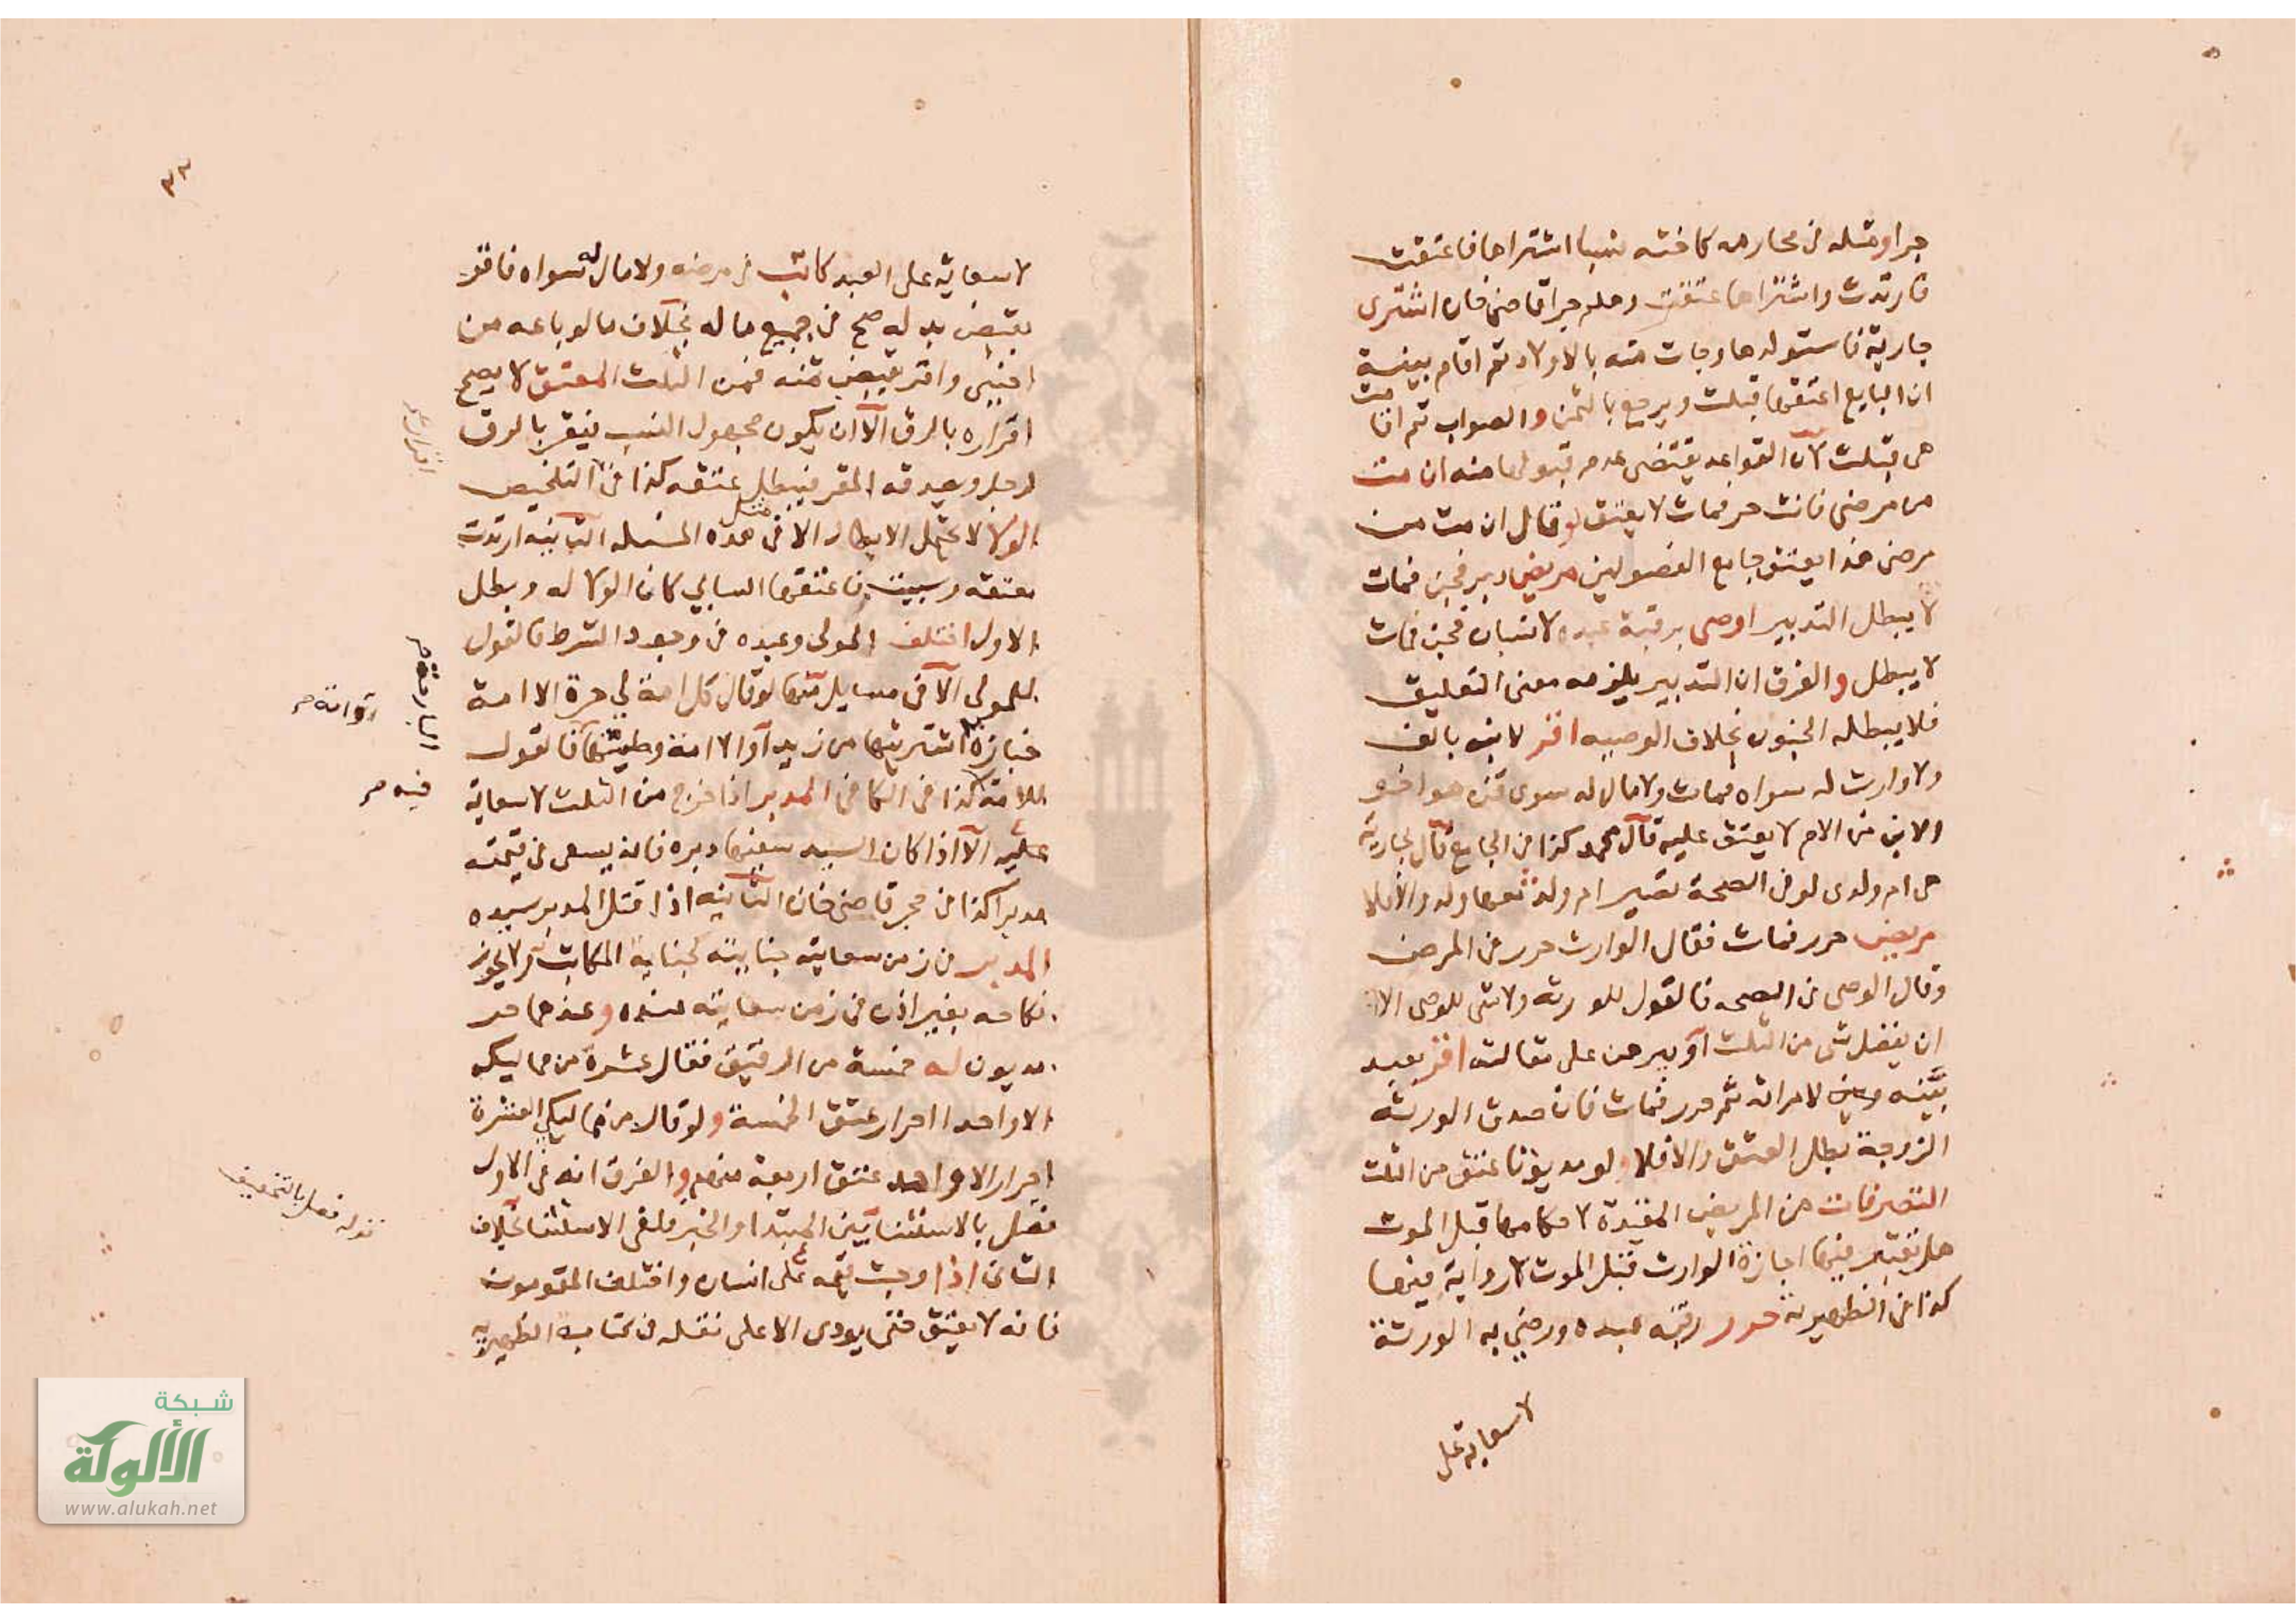 جرا ومثله في محارمه كاخته نسبا اشتراها فاعتقت
فارتدت واشتراها عتقت وهلم جرا قاضي خان اشترى
جارية فاستولدها وجات منه بالاولاد ثم اقام بينة
ان البايع اعتقها قبلت ويرجع بالثمن والصواب ثم اقامت
هي قبلت لان القواعد يقتضي عدم قبولها منه ان مت
من مرضي فانت حر فمات لا يعتق لو قال ان مت من
مرضي هذا يعتق جامع الفصولين مريض دبر فجن فمات
لا يبطل التدبير اوصى برقبة عبده لانسان فجن فمات
لا يبطل والفرق ان التدبير يلزمه معنى التعليق
فلا يبطله الجنون بخلاف الوصيه اقر لابنه بالف
ولا وارث له سواه فمات ولا مال له سوى قن هو اخو
الابن من الام لا يعتق عليه قال محمد كذا في الجامع قال لجارية
هي ام ولدي لو في الصحة تصير ام ولد معها ولد والا فلا
مريض حرر فمات فقال الوارث حرر في المرض
وقال الوصي في الصحه فالقول للورثه ولا شي للوصي الا
ان يفضل شي من الثلث او يبرهن على مقالته اقر بعبد
بينه وبين لامراته ثم حرر فمات فان صدق الورثة
الزوجة بطل العتق والا فلا ولو مديونا عتق من الثلث
التصرفات من المريض المفيدة لاحكامها قبل الموت
هل تعتبر فيها اجازة الوارث قبل الموت لا رواية فيها
كذا في الظهيرية حرر رقبة عبده ورضي به الورثة
لا سعاية على
٣٣
لا سعاية على العبد كاتب في مرضه ولا مال له سواه فاقر
بقبض بدله صح في جميع ماله بخلاف ما لو باعه من
اجنبي واقر بقبض ثمنه فمن الثلث المعتق لا يصح
اقراره بالرق الا ان يكون مجهول النسب فيقر بالرق
لرجل وصدقه المقر فيبطل عتقه كذا في التلخيص
الولا لا يحتمل الابطال الا في مثل هذه المسئله الثانيه ارتدت
معتقه وسبيت فاعتقها السابي كان الولا له وبطل
الاول اختلف المولى وعبده في وجود الشرط فالقول
للمولى الا في مسايل منها لو قال كل امة لي حرة الا امة
خبازة اشتريتها من زيد او الا امة وطيتها فالقول
للامة كذا في الكافي المدبر اذا خرج من الثلث لا سعاية
عليه الا اذا كان السيد سفيها دبره فانه يسعى في قيمته
مدبرا كذا في حجر قاضي خان الثانيه اذا قتل المدبر سيده
المدبر في زمن سعايته جنايته كجناية المكاتب ولا يجوز
نكاحه بغير اذن في زمن سعايته عنده وعندهما حر
مديون له خمسة من الرقيق فقال عشرة من مماليكي
الا واحدا احرار عتق الخمسة ولو قال مماليكي العشرة
احرار الا واحد عتق اربعة منهم والفرق انه في الاول
فصل بالاستثنا بين المبتدا والخبر فلغى الاستثنا بخلاف
الثاني اذا وجبت قيمه على انسان واختلف المقومون
فانه لا يعتق حتى يودى الاعلى نقله في كتاب الظهيرية
فيه صر
قوله فصل بالتخفيف
شبكة
الألوكة
www.alukah.net